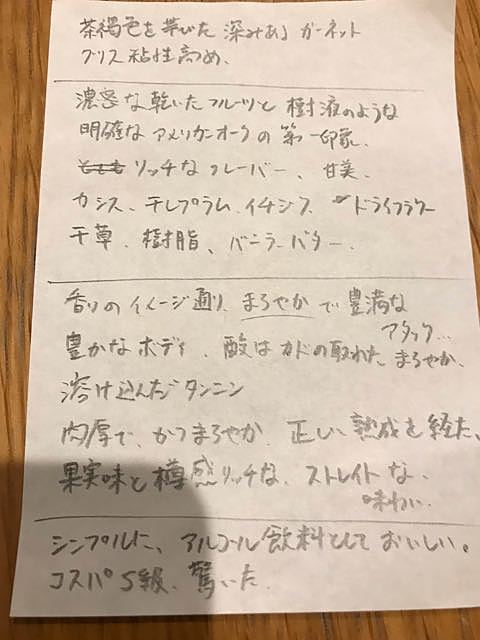 茶褐色を帯びた深みあるガーネット
グリス粘性高め、
濃密な乾いたフルーツと樹液のような
明確なアメリカンオークの第一印象、
とても リッチなフレーバー、甘美、
カシス、干しプラム、イチジク、ドライフラワー
干草、樹脂、バニラ、バター、
香りのイメージ通り、まろやかで豊満な
アタック…
豊かなボディ、酸はカドの取れた まろやか、
溶け込んだタンニン
肉厚で、かつまろやか、正しい熟成を経た、
果実味と樽感リッチな、ストレイトな、
味わい
シンプルに、アルコール飲料としておいしい。
コスパS級、驚いた、